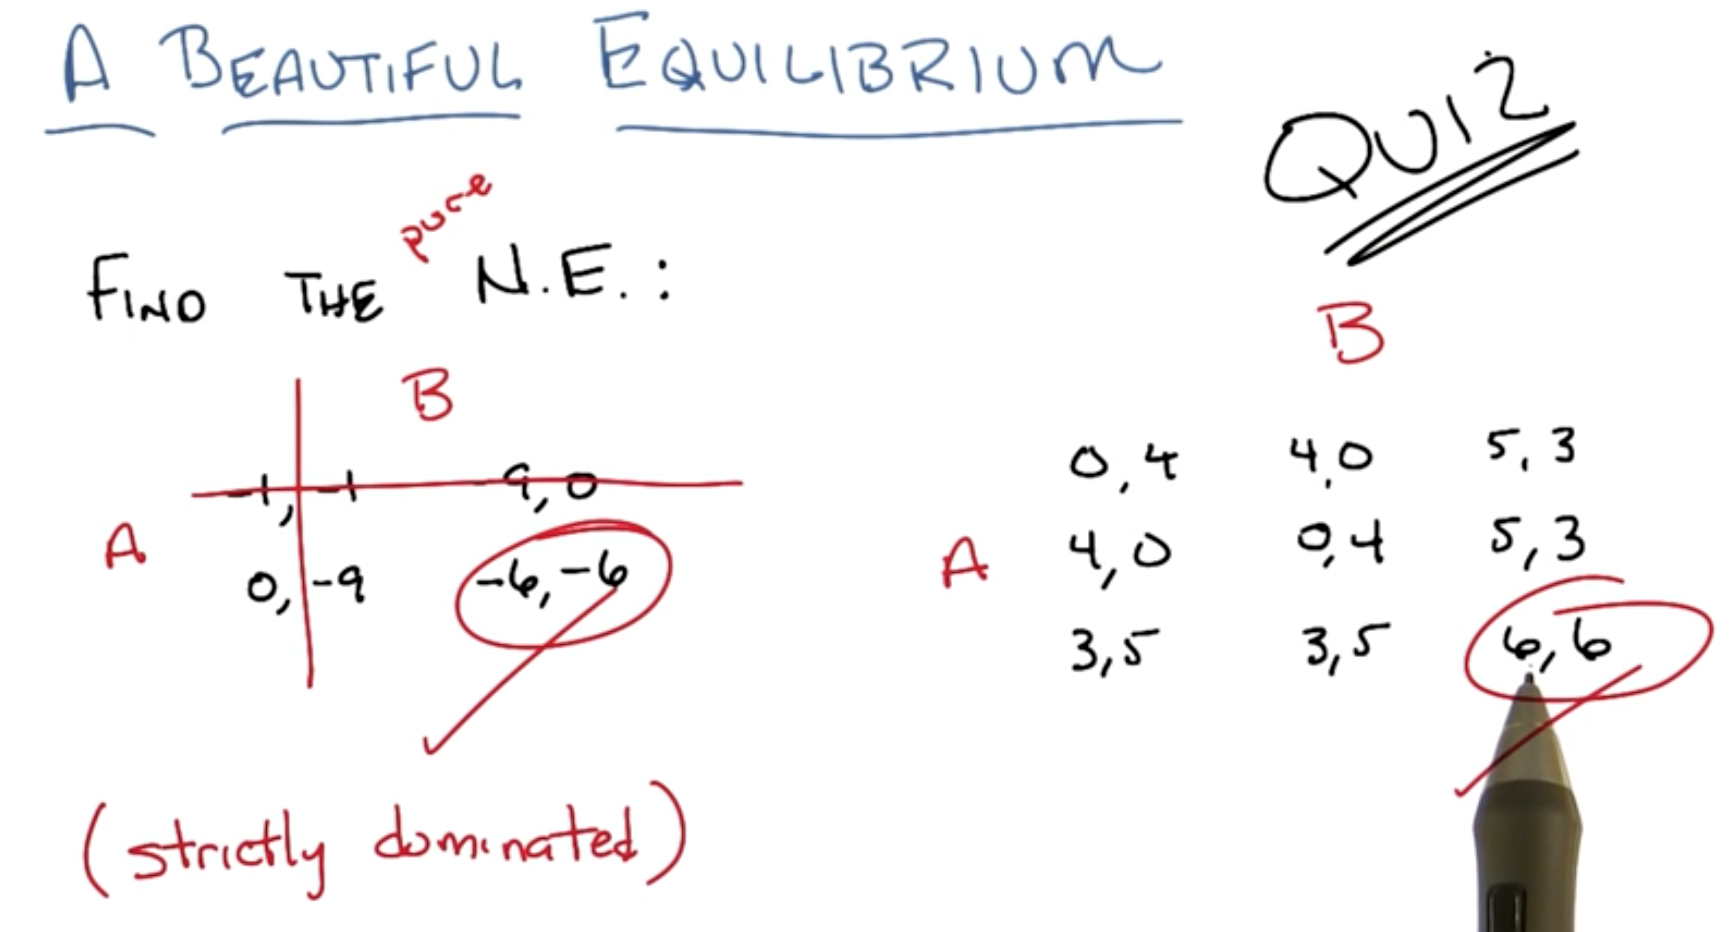 A BEAUTIFUL EQUILIBRIUM
QUIZ
FIND THE pure N.E.:
B
-1, -1 9, 0
A
0, -9 -6, -6
(strictly dominated)
B
0, 4 4, 0 5, 3
A 4, 0 0, 4 5, 3
3, 5 3, 5 6, 6